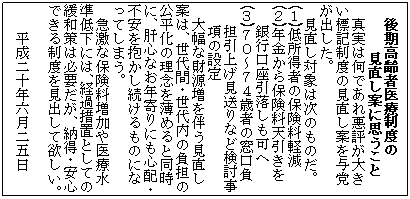 後期高齢者医療制度の
見直し案に思うこと
真実は何であれ悪評が大き
い標記制度の見直し案を与党
が出した。
見直し対象は次のものだ。
(1)低所得者の保険料軽減
(2)年金から保険料天引きを
銀行口座引落しも可へ
(3)70～74歳者の窓口負
担引上げ見送りなど検討事
項の設定
大幅な財源増を伴う見直し
案は、世代間・世代内の負担の
公平化の理念を薄めると同時
に、肝心なお年寄りにも心配・
不安を抱かし続けるものにな
ってしまう。
急激な保険料増加や医療水
準低下には、経過措置としての
緩和策は必要だが、納得・安心
できる制度を見出して欲しい。
平成二十年六月二五日